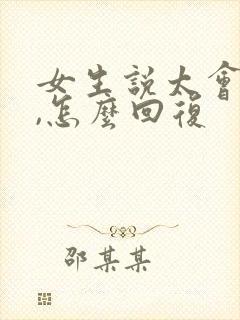 女生説太會
,怎麽回復
邵某某